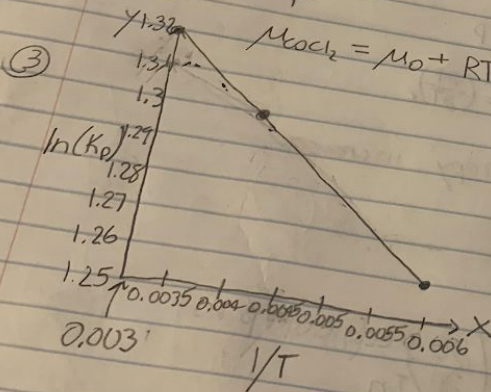 ③
y 1.32
μCOCl₂ = μ₀ + RT
1.31
1.3
ln(Kp)
1.29
1.28
1.27
1.26
1.25
0.003
0.0035 0.004 0.0045 0.005 0.0055 0.006 X
1/T